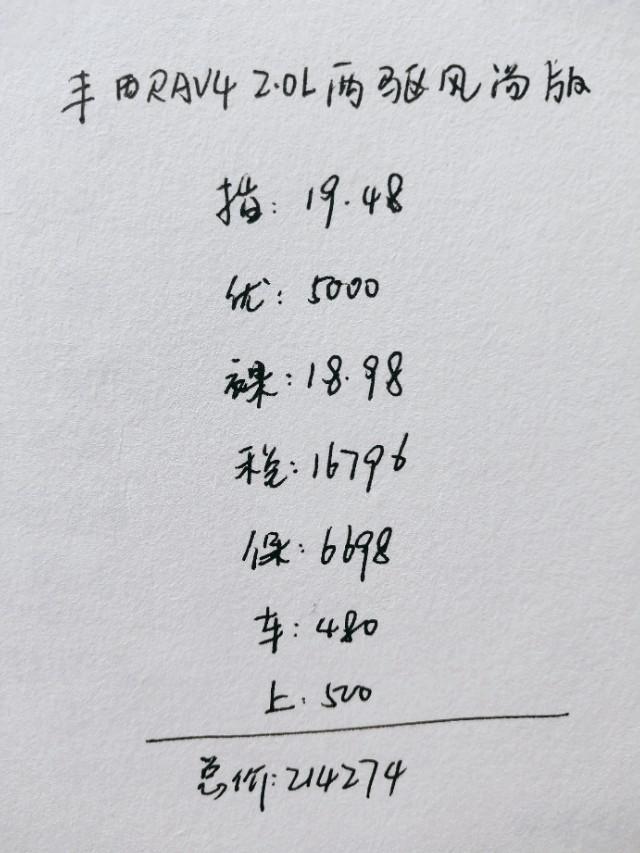 丰田RAV4 2.0L两驱风尚版
指:19.48
优:5000
裸:18.98
税:16796
保:6698
车:480
上:500
总价:214274